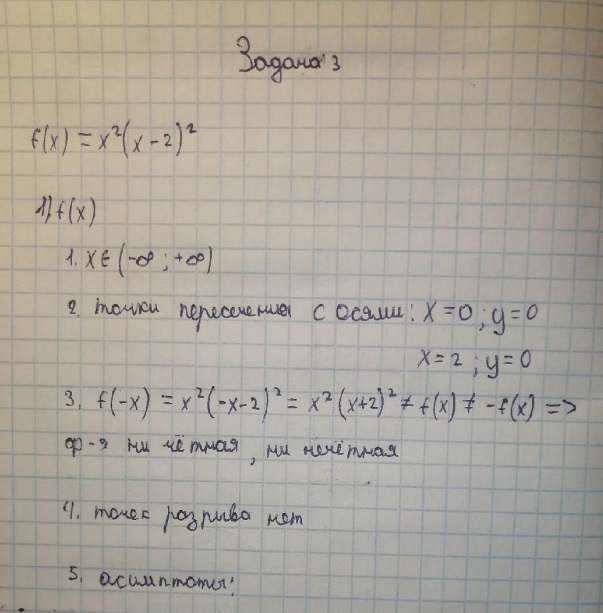 Задача 3
f(x) = x²(x-2)²
1) f(x)
1. x∈(-∞ ; +∞)
2. точки пересечения с осями: x=0 ; y=0
x=2 ; y=0
3. f(-x) = x²(-x-2)² = x²(x+2)² ≠ f(x) ≠ -f(x) =>
ф-я ни чётная, ни нечётная
4. точек разрыва нет
5. асимптоты: